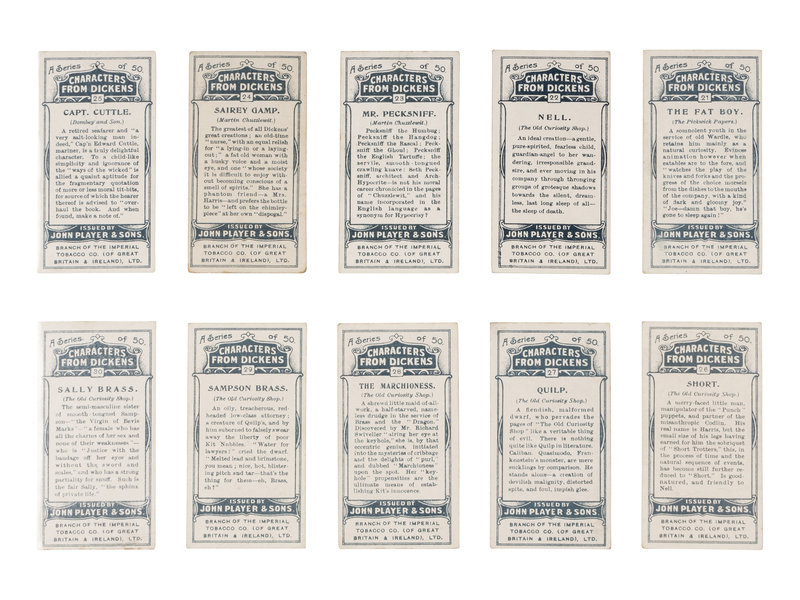 A Series of 50.
CHARACTERS
FROM DICKENS
25
CAPT. CUTTLE.
(Dombey and Son.)
A retired seafarer and "a
very salt-looking man in-
deed," Cap'n Edward Cuttle,
mariner, is a truly delightful
character. To a child-like
simplicity and ignorance of
the "ways of the wicked" is
allied a quaint aptitude for
the fragmentary quotation
of more or less moral tit-bits,
for source of which the hearer
thereof is advised to "over-
haul the book. And when
found, make a note of."
ISSUED BY
JOHN PLAYER & SONS.
BRANCH OF THE IMPERIAL
TOBACCO CO. (OF GREAT
BRITAIN & IRELAND), LTD.
A Series of 50.
CHARACTERS
FROM DICKENS
24
SAIREY GAMP.
(Martin Chuzzlewit.)
The greatest of all Dickens'
great creations; an old-time
"nurse," with an equal relish
for "a lying-in or a laying-
out;" a fat old woman with
a husky voice and a moist
eye, and one "whose society
it is difficult to enjoy with-
out becoming conscious of a
smell of spirits." She has a
phantom friend—a Mrs.
Harris—and prefers the bottle
to be "left on the chimley-
piece" at her own "dispogal."
ISSUED BY
JOHN PLAYER & SONS.
BRANCH OF THE IMPERIAL
TOBACCO CO. (OF GREAT
BRITAIN & IRELAND), LTD.
A Series of 50.
CHARACTERS
FROM DICKENS
23
MR. PECKSNIFF.
(Martin Chuzzlewit.)
Pecksniff the Humbug;
Pecksniff the Hangdog;
Pecksniff the Rascal; Peck-
sniff the Ghoul; Pecksniff
the English Tartuffe; the
servile, smooth-tongued
crawling knave; Seth Peck-
sniff, architect and Arch-
Hypocrite—is not his novel
career chronicled in the pages
of "Chuzzlewit," and his
name incorporated in the
English language as a
synonym for Hypocrisy?
ISSUED BY
JOHN PLAYER & SONS.
BRANCH OF THE IMPERIAL
TOBACCO CO. (OF GREAT
BRITAIN & IRELAND), LTD.
A Series of 50.
CHARACTERS
FROM DICKENS
22
NELL.
(The Old Curiosity Shop.)
An ideal creation—a gentle,
pure-spirited, fearless child,
guardian-angel to her wan-
dering, irresponsible grand-
sire, and ever moving in his
company through thronging
groups of grotesque shadows
towards the silent, dream-
less, last long sleep of all—
the sleep of death.
ISSUED BY
JOHN PLAYER & SONS.
BRANCH OF THE IMPERIAL
TOBACCO CO. (OF GREAT
BRITAIN & IRELAND), LTD.
A Series of 50.
CHARACTERS
FROM DICKENS
21
THE FAT BOY.
(The Pickwick Papers.)
A somnolent youth in the
service of old Wardle, who
retains him mainly as a
natural curiosity. Evinces
animation however when
eatables are to the fore, and
"watches the play of the
knives and forks and the pro-
gress of the choice morsels
from the dishes to the mouths
of the company, with a kind
of dark and gloomy joy."
"Joe—damn that boy, he's
gone to sleep again!"
ISSUED BY
JOHN PLAYER & SONS.
BRANCH OF THE IMPERIAL
TOBACCO CO. (OF GREAT
BRITAIN & IRELAND), LTD.
A Series of 50.
CHARACTERS
FROM DICKENS
30
SALLY BRASS.
(The Old Curiosity Shop.)
The semi-masculine sister
of smooth tongued Samp-
son—"the Virgin of Bevis
Marks" "a female who has
all the charms of her sex and
none of their weaknesses"—
who is "Justice with the
bandage off her eyes and
without the sword and
scales," and who has a strong
partiality for snuff. Such is
the fair Sally, "the sphinx
of private life."
ISSUED BY
JOHN PLAYER & SONS.
BRANCH OF THE IMPERIAL
TOBACCO CO. (OF GREAT
BRITAIN & IRELAND), LTD.
A Series of 50.
CHARACTERS
FROM DICKENS
29
SAMPSON BRASS.
(The Old Curiosity Shop.)
An oily, treacherous, red-
headed low-class attorney;
a creature of Quilp's, and by
him suborned to falsely swear
away the liberty of poor
Kit Nubbles. "Water for
lawyers! cried the dwarf.
Melted lead and brimstone,
you mean; nice, hot, blister-
ing pitch and tar—that's the
thing for them—eh, Brass,
eh?"
ISSUED BY
JOHN PLAYER & SONS.
BRANCH OF THE IMPERIAL
TOBACCO CO. (OF GREAT
BRITAIN & IRELAND), LTD.
A Series of 50.
CHARACTERS
FROM DICKENS
28
THE MARCHIONESS.
(The Old Curiosity Shop.)
A shrewd little maid-of-all-
work, a half-starved, name-
less drudge in the service of
Brass and the "Dragon."
Discovered by Mr. Richard
Swiveller "airing her eye at
the keyhole," she is, by that
eccentric genius, initiated
into the mysteries of cribbage
and the delights of "purl,"
and dubbed "Marchioness"
upon the spot. Her "key-
hole" propensities are the
ultimate means of estab-
lishing Kit's innocence.
ISSUED BY
JOHN PLAYER & SONS.
BRANCH OF THE IMPERIAL
TOBACCO CO. (OF GREAT
BRITAIN & IRELAND), LTD.
A Series of 50.
CHARACTERS
FROM DICKENS
27
QUILP.
(The Old Curiosity Shop.)
A fiendish, malformed
dwarf, who pervades the
pages of "The Old Curiosity
Shop" like a veritable thing
of evil. There is nothing
quite like Quilp in literature.
Caliban, Quasimodo, Fran-
kenstein's monster, are mere
sucklings by comparison. He
stands alone—a creation of
devilish malignity, distorted
spite, and foul, impish glee.
ISSUED BY
JOHN PLAYER & SONS.
BRANCH OF THE IMPERIAL
TOBACCO CO. (OF GREAT
BRITAIN & IRELAND), LTD.
A Series of 50.
CHARACTERS
FROM DICKENS
26
SHORT.
(The Old Curiosity Shop.)
A merry-faced little man,
manipulator of the "Punch"
puppets, and partner of the
misanthropic Codlin. His
real name is Harris, but the
small size of his legs having
earned for him the sobriquet
of "Short Trotters," this, in
the process of time and the
natural sequence of events,
has become still further re-
duced to "Short." Is good-
natured, and friendly to
Nell.
ISSUED BY
JOHN PLAYER & SONS.
BRANCH OF THE IMPERIAL
TOBACCO CO. (OF GREAT
BRITAIN & IRELAND), LTD.